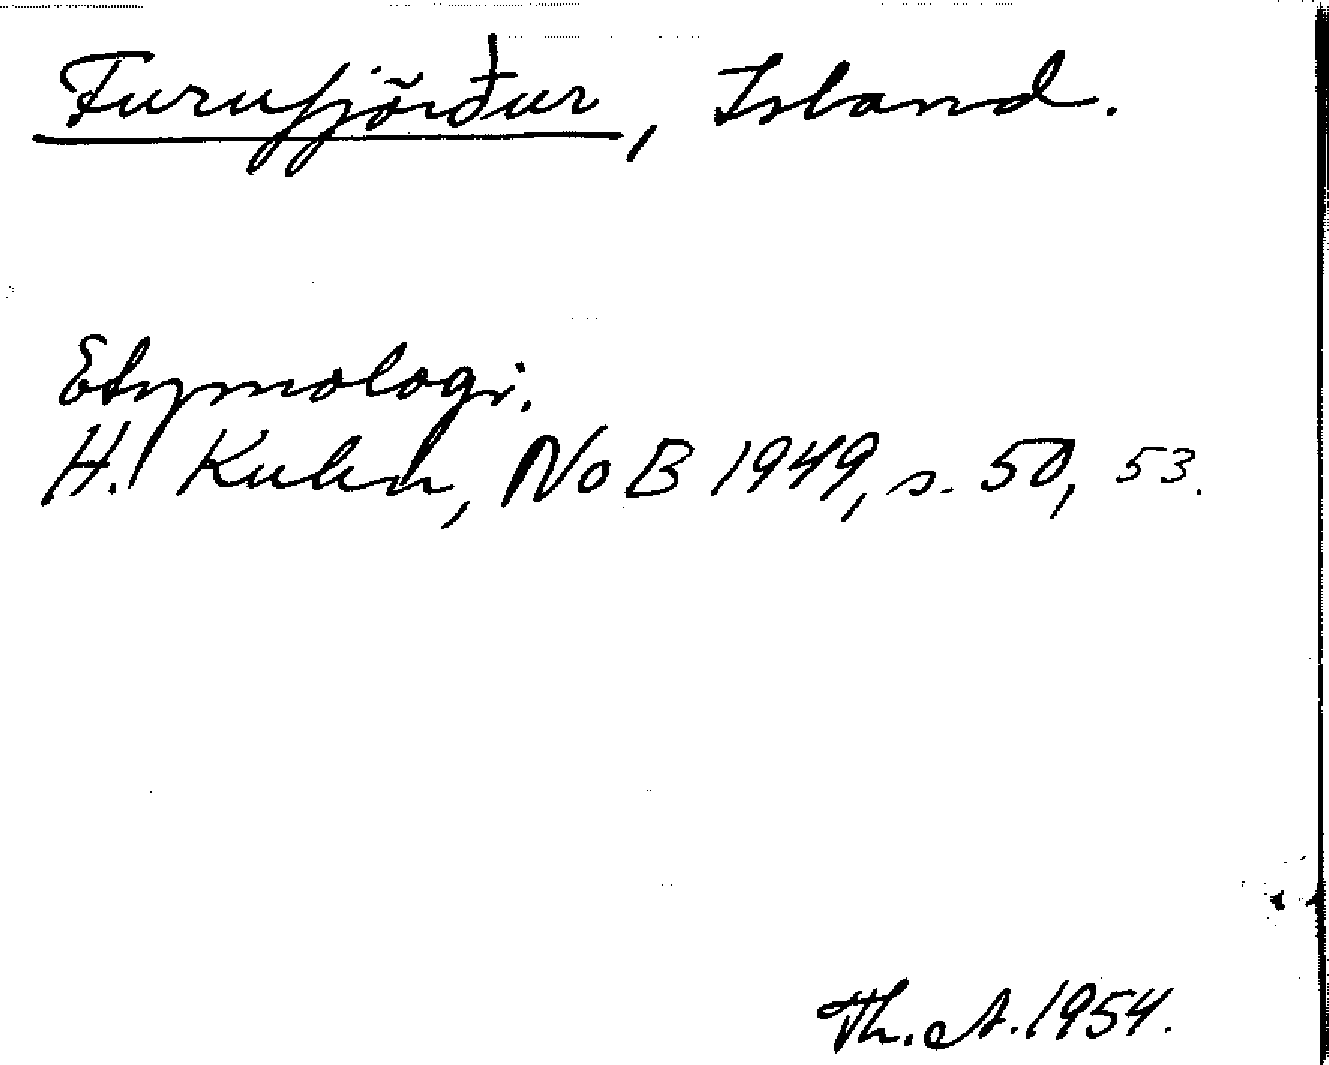 Furufjörður, Island.
Etymologi.
H. Kuhn, NoB 1949, s. 50, 53.
Th. A. 1954.